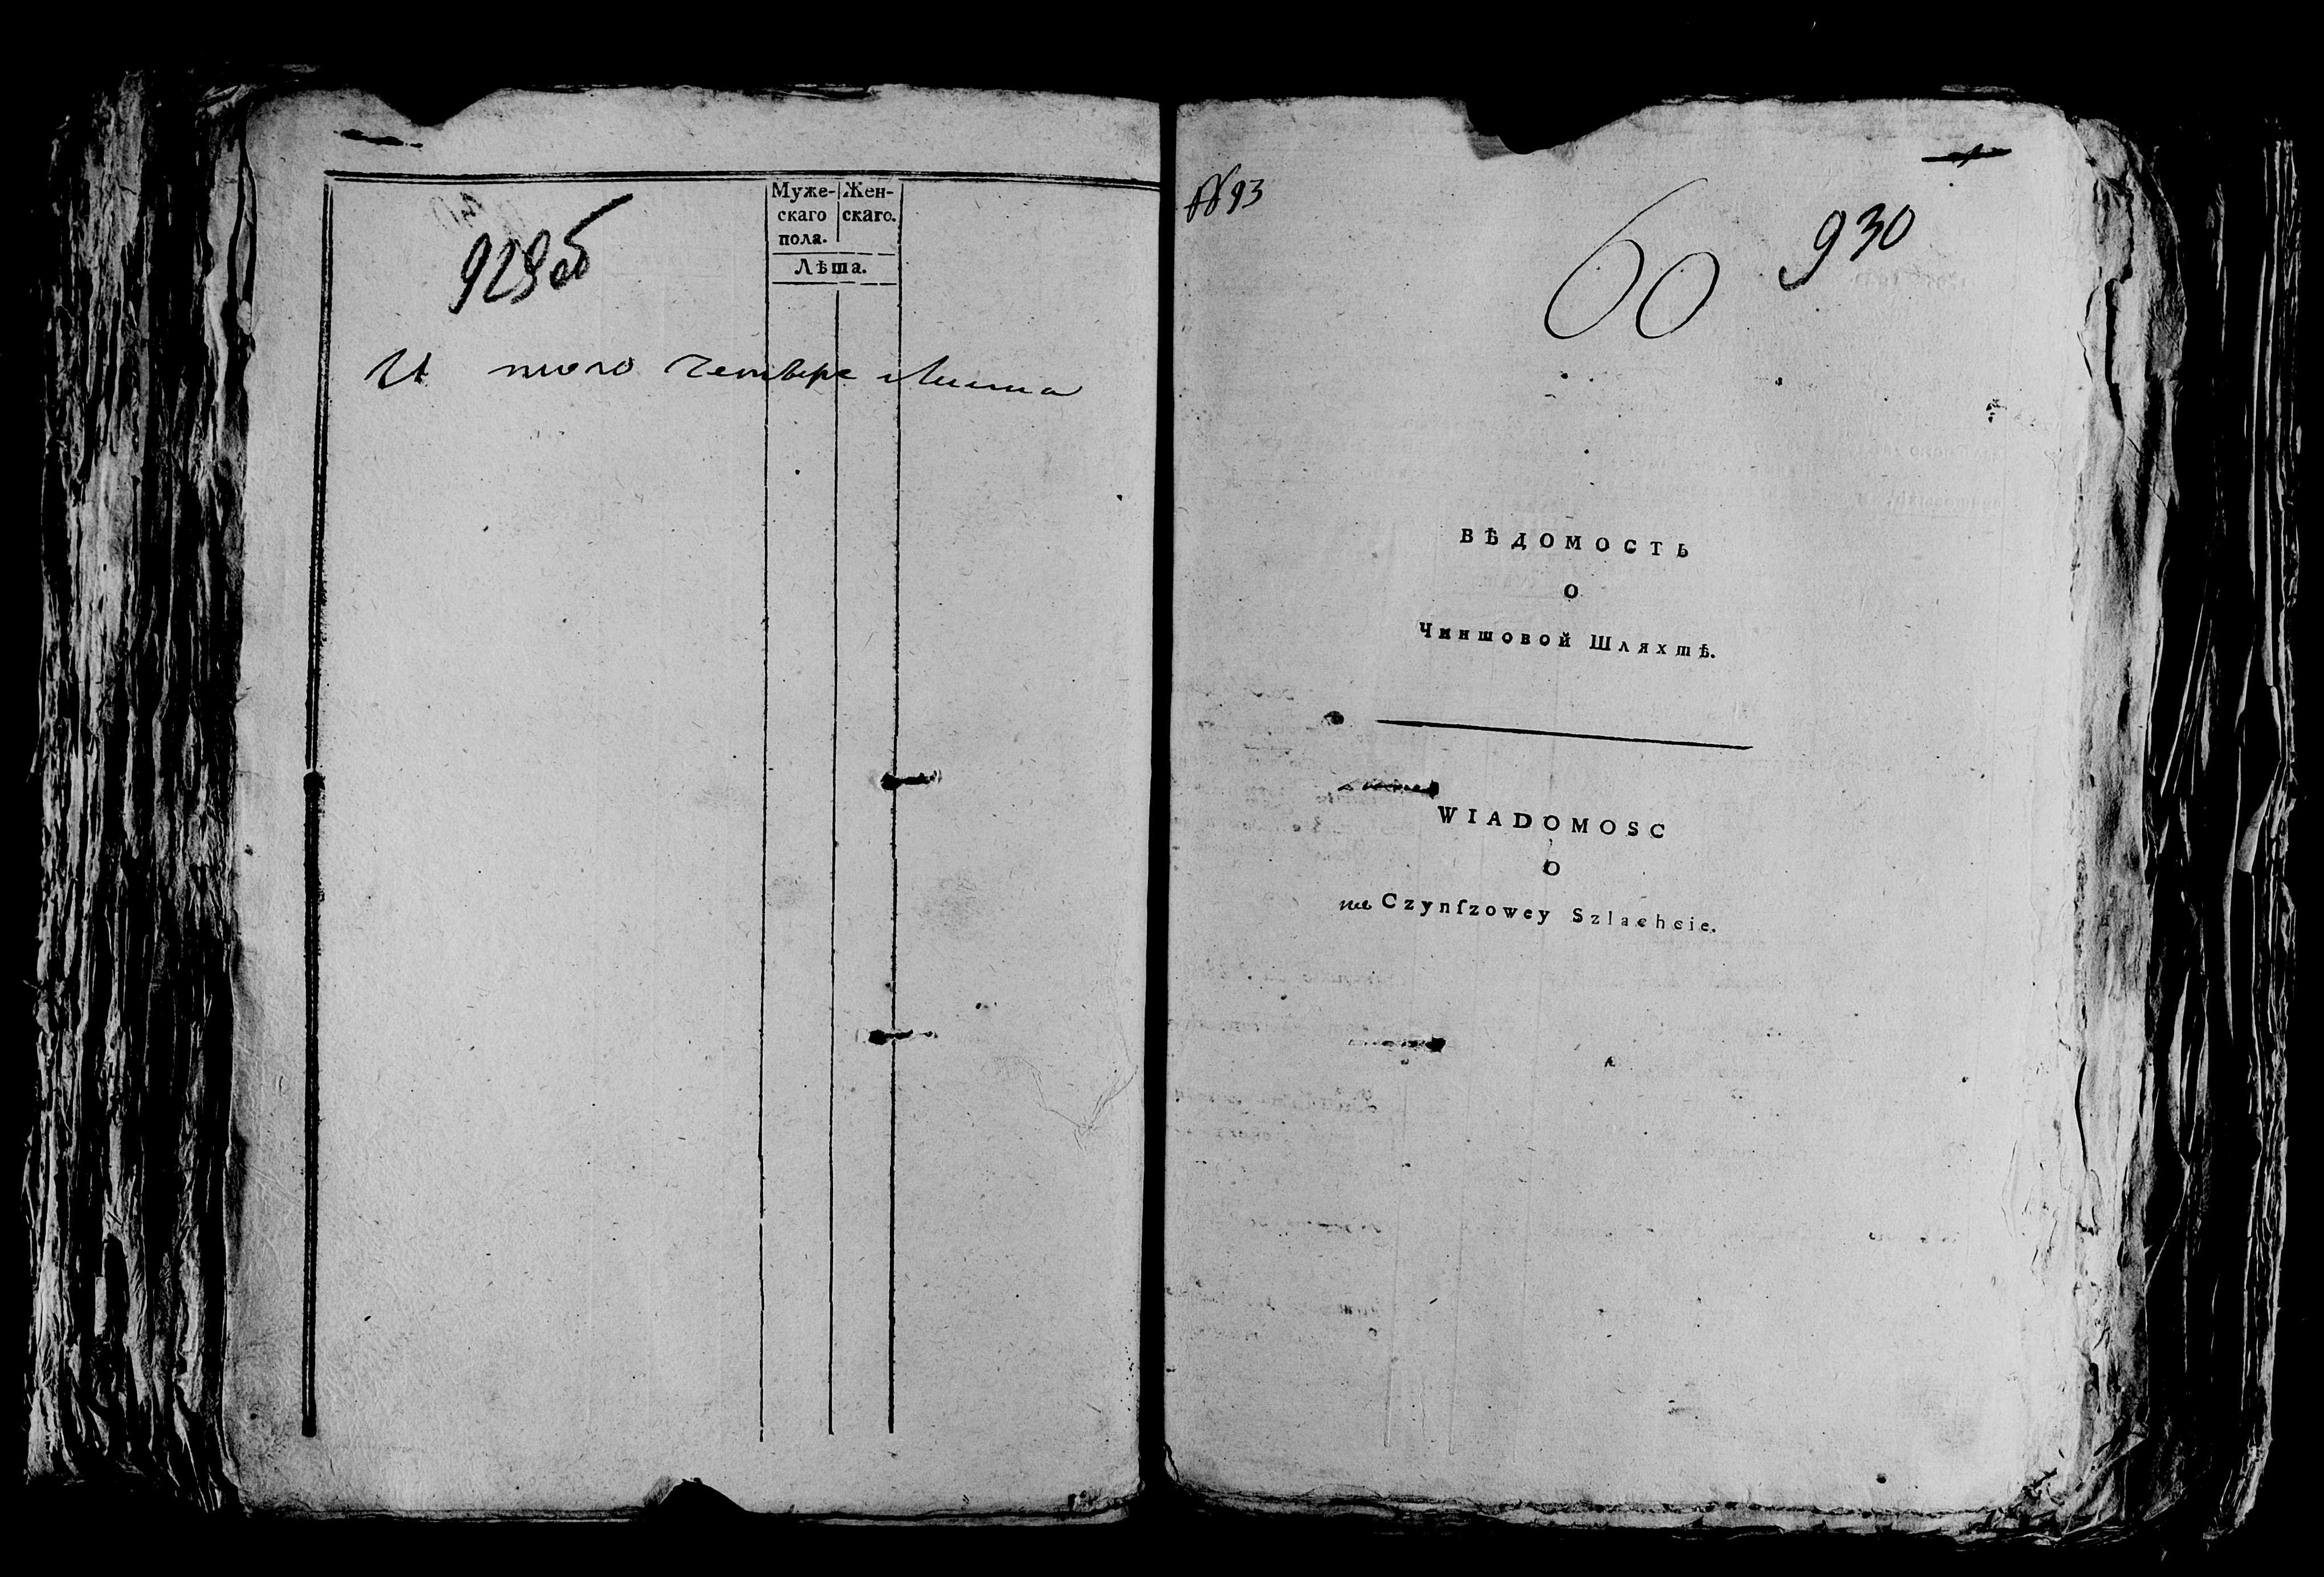 929об
Муже- Жен-
скаго скаго.
пола.
Лѣта.
И того четыре Листа
№93
60
930
ВѢДОМОСТЬ
о
Чиншовой Шляхтѣ.
WIADOMOSC
O
nie Czynſzowey Szlachcie.